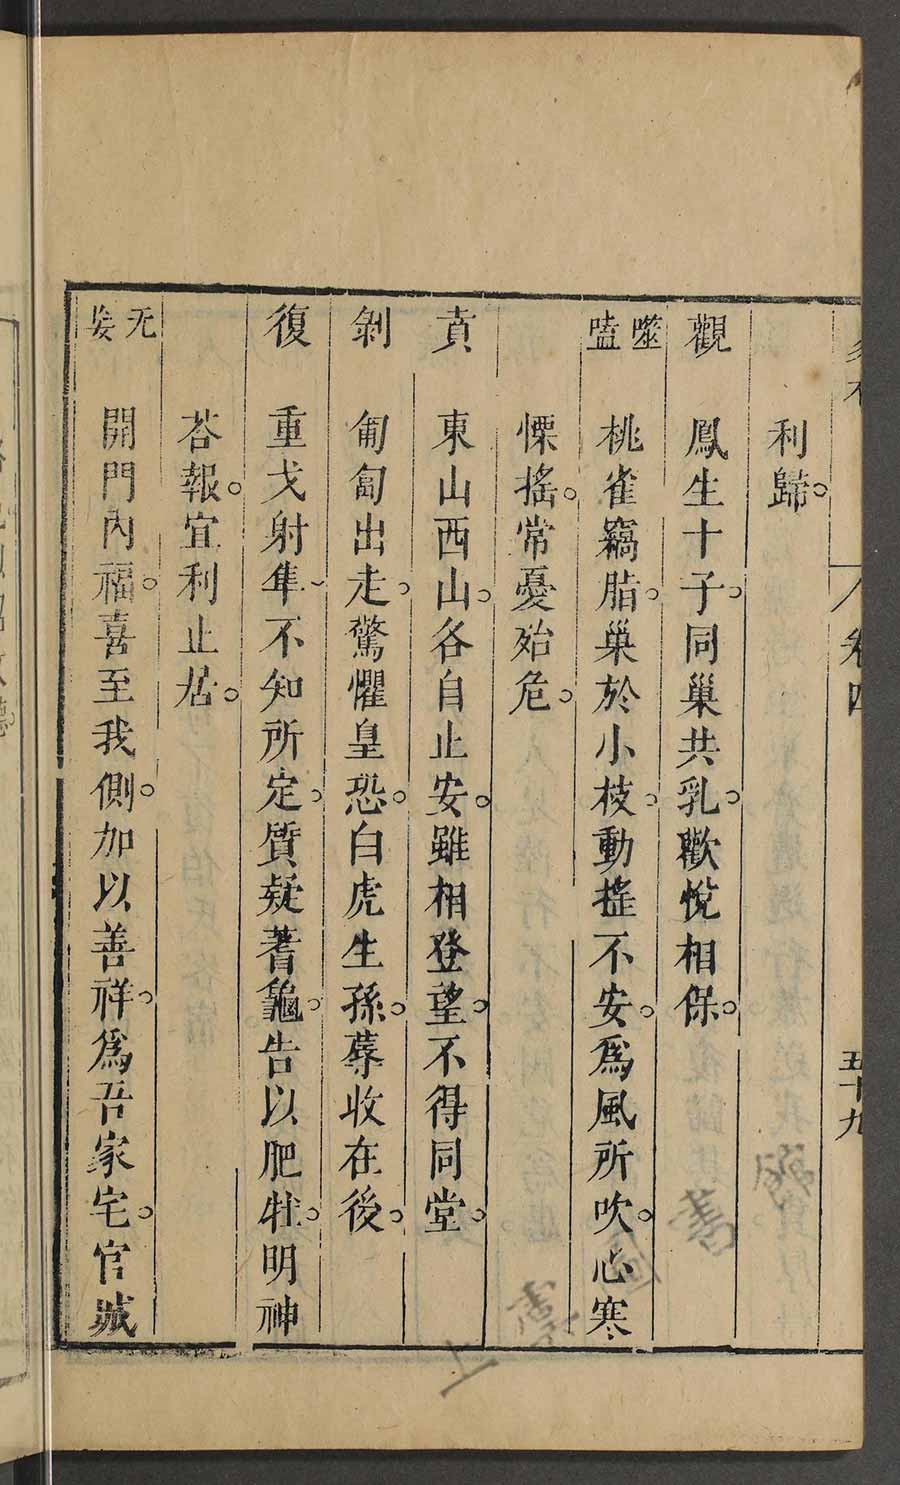 卷四 五十九
利歸。
觀 鳳生十子。同巢共乳。歡悅相保。
噬嗑 桃雀竊脂。巢於小枝。動搖不安。爲風所吹。心寒
慄搖。常憂殆危。
賁 東山西山。各自止安。雖相登望。不得同堂。
剝 匍匐出走。驚懼皇恐。白虎生孫。蓐收在後。
復 重戈射隼。不知所定。質疑蓍龜。告以肥牡。明神
荅報。宜利止居。
无妄 開門內福。喜至我側。加以善祥。爲吾家宅。官城